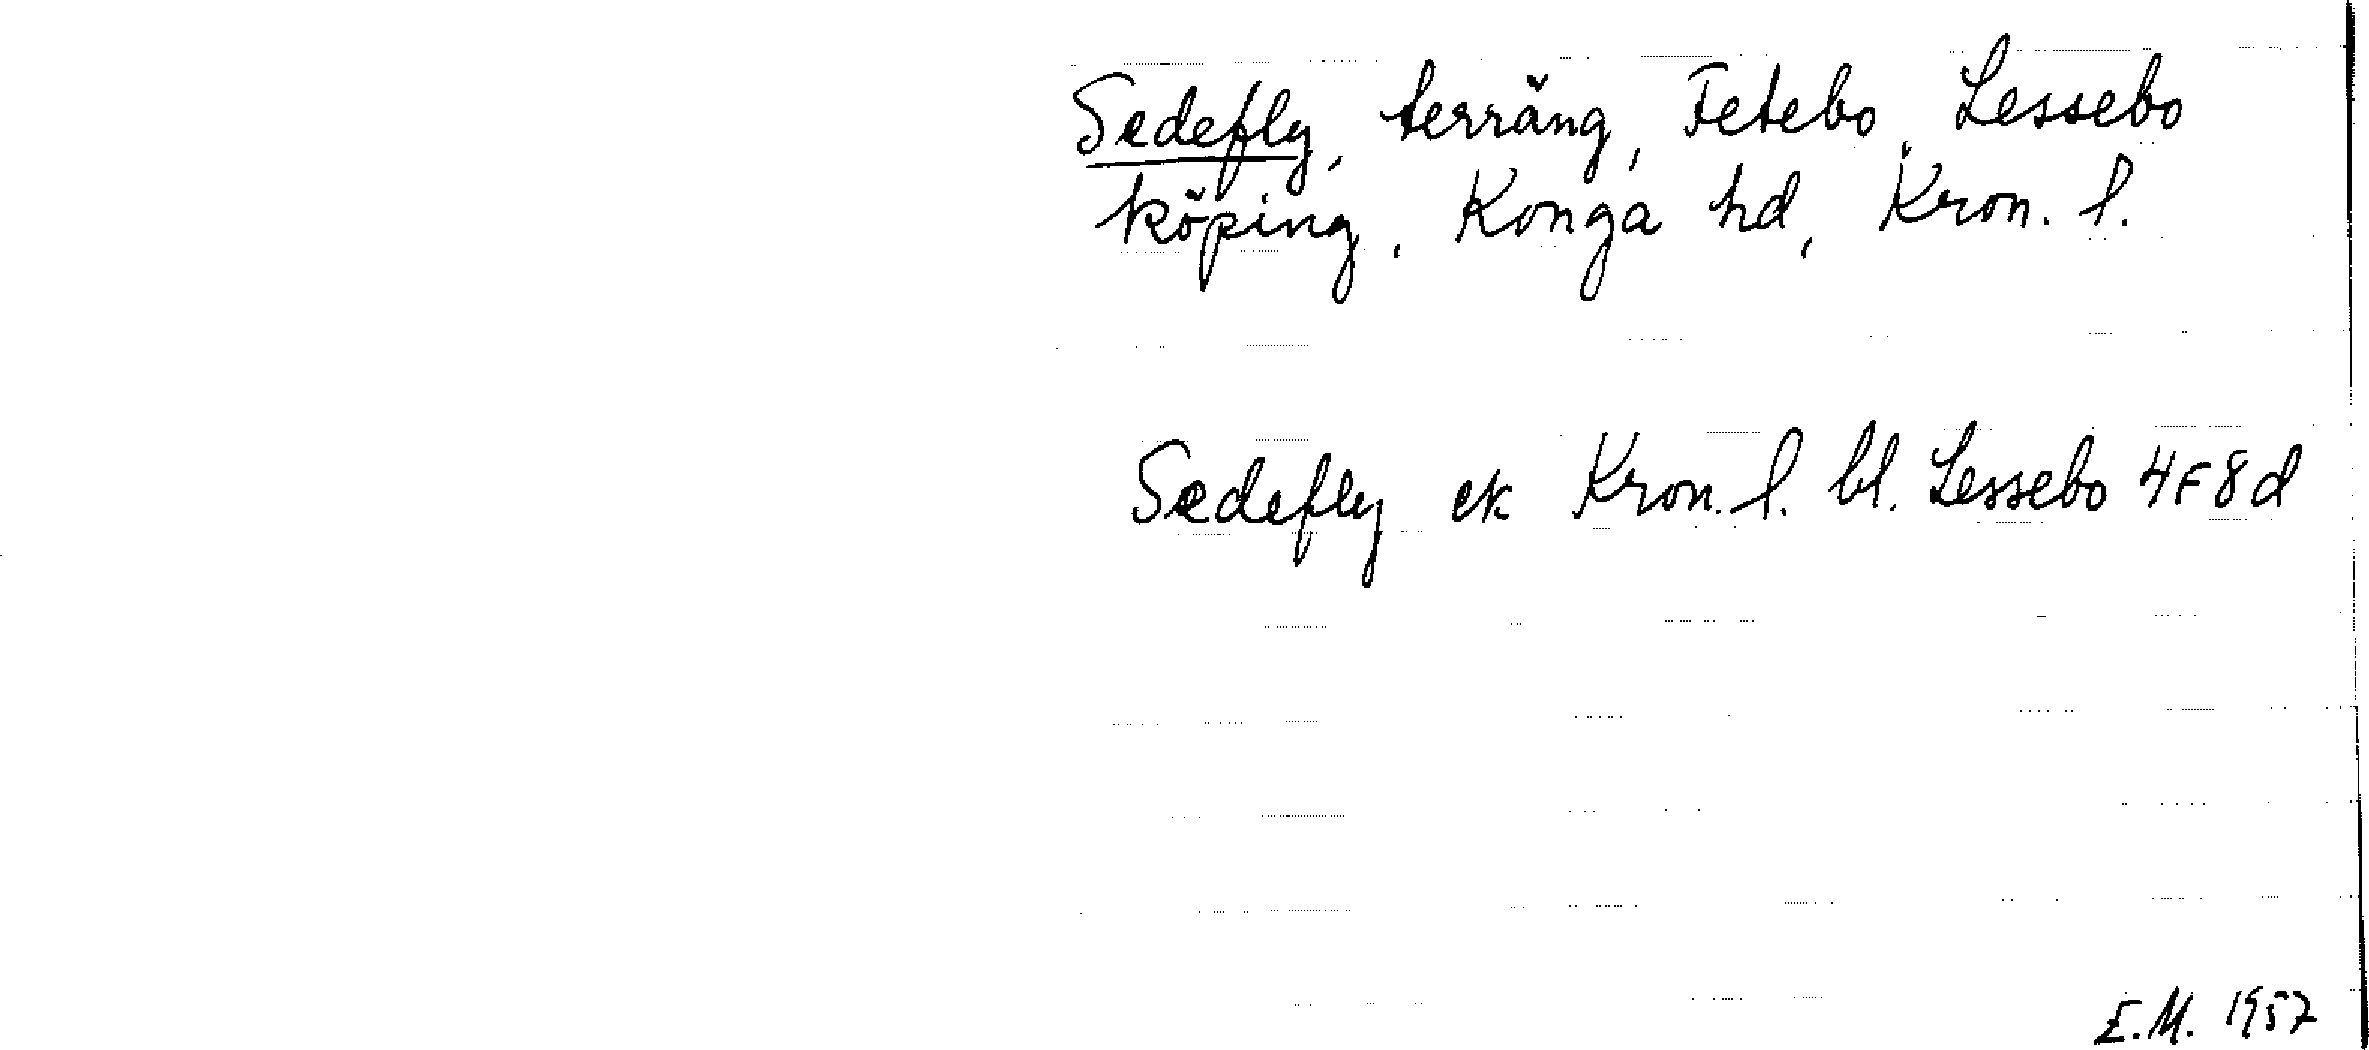 Sedefly, terräng, Fetebo, Lessebo
köping, Konga hd, Kron. l.
Sedefly ek Kron. l. bl. Lessebo 4F8d
E.M. 1957